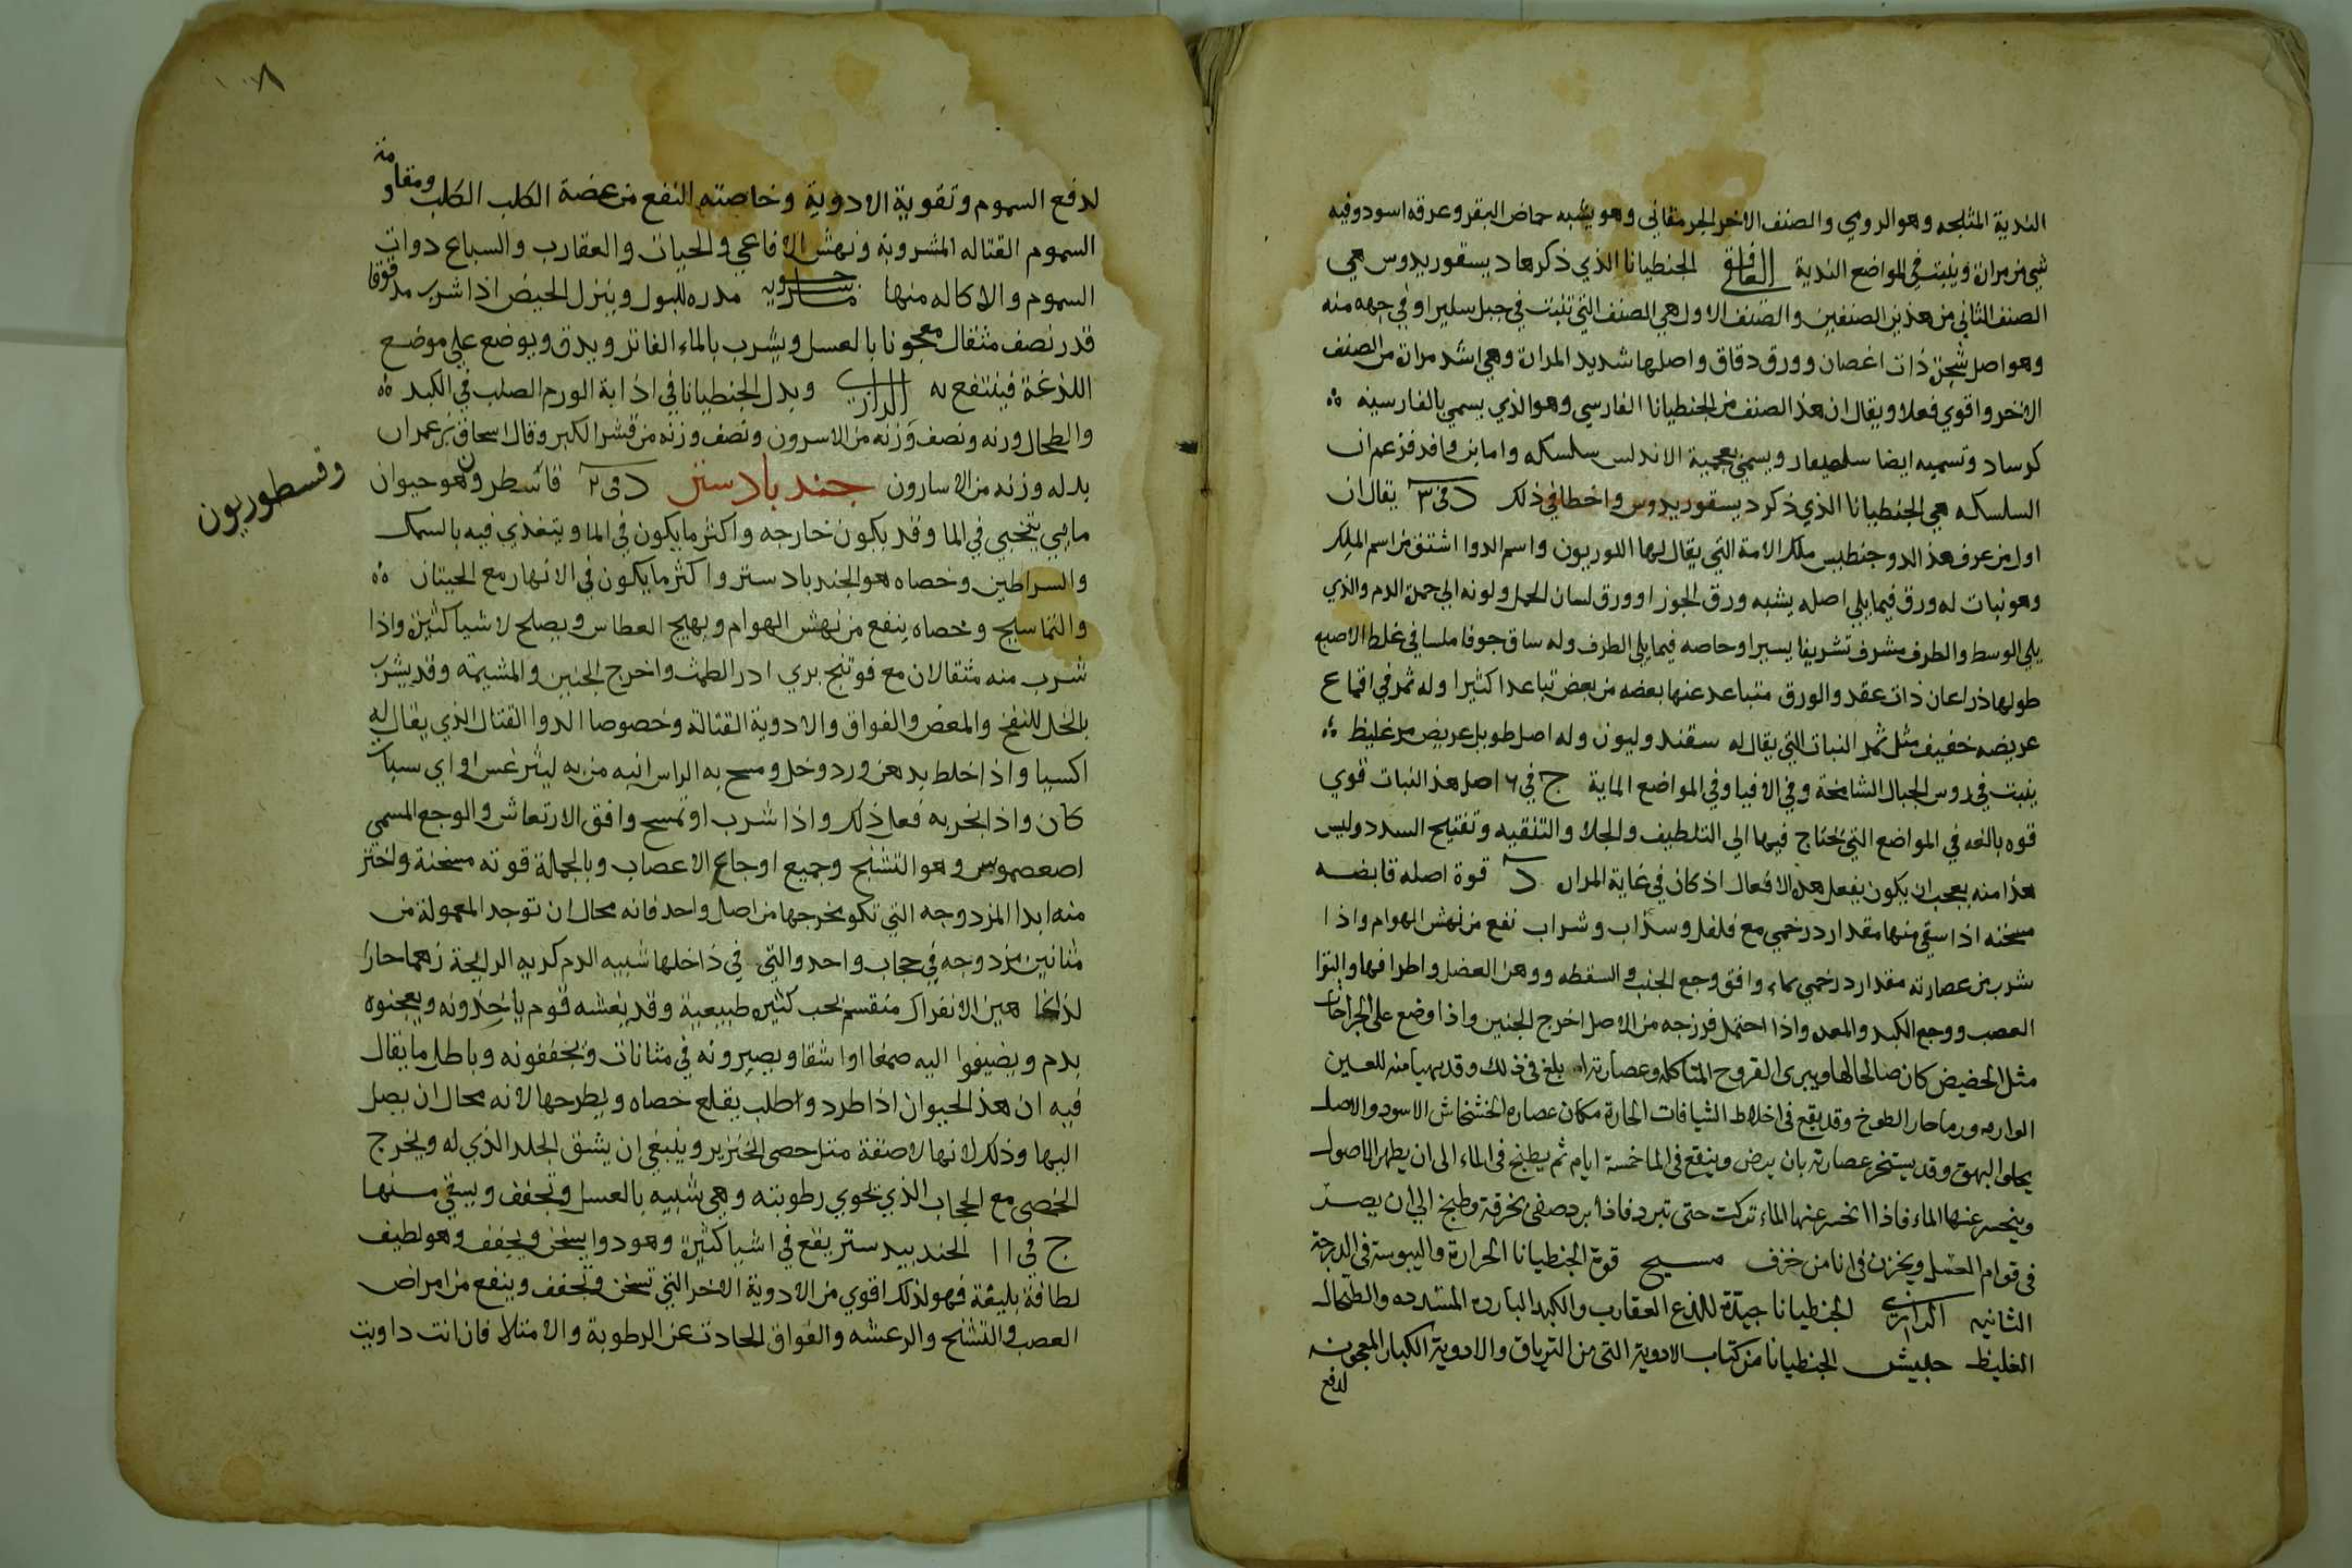 الندية المثلجه وهو الرومي والصنف الاخر الجرمقاني وهو يشبه حماض البقر وعرقه اسود وفيه
شي من مرارة وينبت في المواضع الندية الغافقي الجنطيانا الذي ذكرها ديسقوريدوس هي
الصنف الثاني من هذين الصنفين والصنف الاول هي الصنف التي تنبت في جبل سلير او في جهه منه
وهو اصل شجرة ذات اغصان وورق دقاق واصلها شديد المرارة وهي اشد مرارة من الصنف
الاخر واقوي فعلا ويقال ان هذا الصنف من الجنطيانا الفارسي وهو الذي يسمي بالفارسية
كرساد وتسميه ايضا ويسمي بعجمية الاندلس سلسكه واما ابن وافد فزعم ان
السلسكه هي الجنطيانا الذي ذكر ديسقوريدوس واخطا في ذلك د في ٣ يقال ان
اول من عرف هذا الدو جنطيس ملك الامة التي يقال لها اللوريون واسم الدوا اشتق من اسم الملك
وهو نبات له ورق فيما يلي اصله يشبه ورق الجوز او ورق لسان الحمل ولونه الي حمرة الدم والذي
يلي الوسط والطرف مشرف تشريفا يسيرا وخاصه فيما يلي الطرف وله ساق جوفا ملسا في غلظ الاصبع
طولها ذراعان ذات عقد والورق متباعد عنها بعضه من بعض تباعدا كثيرا وله ثمر في اقماع
عريضه خفيف مثل ثمر النبات التي يقال له سقندوليون وله اصل طويل عريض مر غليظ
ينبت في روس الجبال الشامخة وفي الافيا وفي المواضع الماية ج في ٦ اصل هذا النبات قوي
قوه بالغه في المواضع التي يحتاج فيها الي التلطيف والجلا والتنقيه وتفتيح السدد وليس
هذا منه بعجب ان يكون يفعل هذه الافعال اذ كان في غاية المرار د قوة اصله قابضه
مسخنه اذا سقي منها مقدار درخمي مع فلفل وسذاب وشراب نفع من نهش الهوام واذا
شرب من عصارته مقدار درخمي بماء وافق وجع الجنب والسقطه ووهن العضل واطرافها والتوا
العصب ووجع الكبد والمعده واذا احتمل فرزجه من الاصل اخرج الجنين واذا وضع علي الجراحات
مثل الحضيض كان صالحا لها ويبرى القروح المتاكله وعصارته ابلغ في ذلك وقد يهيا منه للعين
الوارمه ورما حارا لطوخ وقد يقع في اخلاط الشيافات الحارة مكان عصاره الخشخاش الاسود والاصل
يجلوا البهق وقد يستخرج عصارته بان يرض وينقع في الما خمسة ايام ثم يطبخ في الماء الى ان يظهر الاصول
وينحسر عنها الماء فاذا انحسر عنها الماء تركت حتى تبرد فاذا برد صفي بخرقة وطبخ الي ان يصير
في قوام العسل ويخزن في انا من خزف مسيح قوة الجنطيانا الحرارة واليبوسة في الدرجة
الثانيه الرازي الجنطيانا جيدة للذع العقارب والكبد البارده المتسدده والطحال
الغليظ حبيش الجنطيانا من كتاب الادوية التي من الترياق والادوية الكبار المعجونه
لدفع
١٠٨
لدفع السموم وتقوية الادوية وخاصته النفع من عضة الكلب الكلب ومقاومة
السموم القتاله المشروبة ونهش الافاعي والحيات والعقارب والسباع دوات
السموم والاكاله منها ماسرحويه مدره للبول وينزل الحيض اذا شرب مدقوقا
قدر نصف مثقال معجونا بالعسل ويشرب بالماء الفاتر ويدق ويوضع علي موضع
اللذغة فينتفع به الرازي وبدل الجنطيانا في اذابة الورم الصلب في الكبد
والطحال وزنه ونصف وزنه من الاسرون ونصف وزنه من قشر الكبر وقال اسحاق بن عمران
بدله وزنه من الاسارون جندبادستر د في ٢ قاسطرون وهو حيوان
وقسطوريون
مايي يتخبي في الما وقد يكون خارجه واكثر ما يكون في الما ويتغذي فيه بالسمك
والسراطين وخصاه هو الجندبادستر واكثر ما يكون في الانهار مع الحيتان
والتماسيح وخصاه ينفع من نهش الهوام ويهيج العطاس ويصلح لاشيا كثيرة واذا
شرب منه مثقالان مع فوتنج بري ادر الطمث واخرج الجنين والمشيمة وقد يشرب
بالخل للنفخ والمغص والفواق والادوية القتالة وخصوصا الدوا القتال الذي يقال له
اكسيا واذا خلط بدهن ورد وخل ومسح به الراس انبه من به ليثرغس او اي سبات
كان واذا بخر به فعل ذلك واذا شرب او تمسح وافق الارتعاش والوجع المسمي
اصعصموس وهو التشنج وجميع اوجاع الاعصاب وبالجملة قوته مسخنة واختر
منه ابدا المزدوجه التي تكو مخرجها من اصل واحد فانه محال ان توجد المعمولة من
مثانين مزدوجه في حجاب واحد والتي في ذاخلها شبيه الدم كريه الرايحة زهما حارا
لذاعا هين الانفراك منقسم بحجب كثيره طبيعية وقد يغشه قوم ياخذونه ويعجنوه
بدم ويضيفوا اليه صمغا او اشقا ويصيرونه في مثانات ويجففونه وباطل ما يقال
فيه ان هذا الحيوان اذا طرد واطلب يقلع خصاه ويطرحها لانه محال ان يصل
اليها وذلك لانها لاصقة مثل خصى الخنزير وينبغي ان يشق الجلد الذي له ويخرج
الخصى مع الحجاب الذي يحوي رطوبته وهي شبيه بالعسل وتجفف ويسقي منها
ج في ١١ الجندبيدستر يقع في اشيا كثيرة وهو دوا يسخن ويجفف وهو لطيف
لطافة بليغة فهو لذلك اقوي من الادوية الاخر التي تسخن وتجفف وينفع من امراض
العصب والتشنج والرعشه والفواق الحادث عن الرطوبة والامتلا فان انت داويت